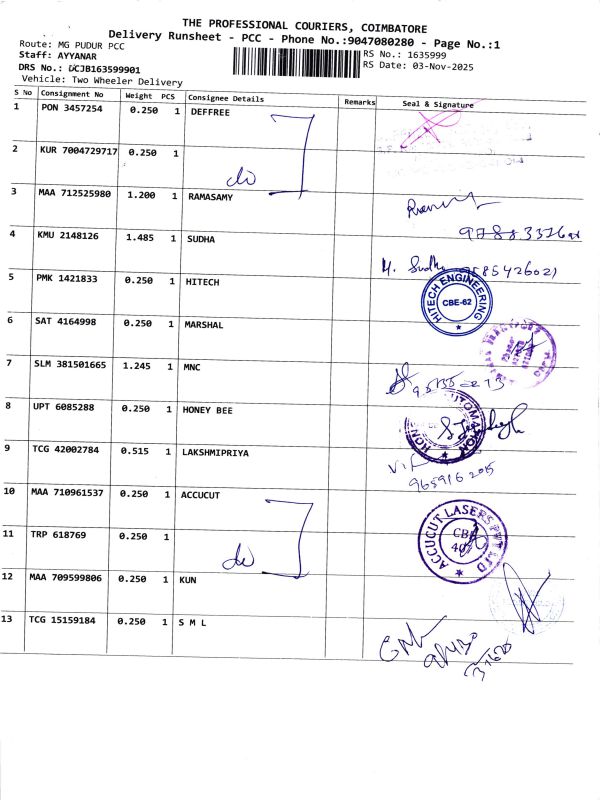 THE PROFESSIONAL COURIERS, COIMBATORE
Delivery Runsheet - PCC - Phone No.:9047080280 - Page No.:1
Route: MG PUDUR PCC
RS No.: 1635999
Staff: AYYANAR
RS Date: 03-Nov-2025
DRS No.: DCJB163599901
Vehicle: Two Wheeler Delivery
S No Consignment No Weight PCS Consignee Details Remarks Seal & Signature
1 PON 3457254 0.250 1 DEFFREE
2 KUR 7004729717 0.250 1 do
3 MAA 712525980 1.200 1 RAMASAMY
4 KMU 2148126 1.485 1 SUDHA M. Sudha
5 PMK 1421833 0.250 1 HITECH HITECH ENGINEERING CBE-62
6 SAT 4164998 0.250 1 MARSHAL
7 SLM 381501665 1.245 1 MNC
8 UPT 6085288 0.250 1 HONEY BEE
9 TCG 42002784 0.515 1 LAKSHMIPRIYA
9659162015
10 MAA 710961537 0.250 1 ACCUCUT
11 TRP 618769 0.250 1 do ACCUCUT LASERS PVT LTD
12 MAA 709599806 0.250 1 KUN
13 TCG 15159184 0.250 1 S M L